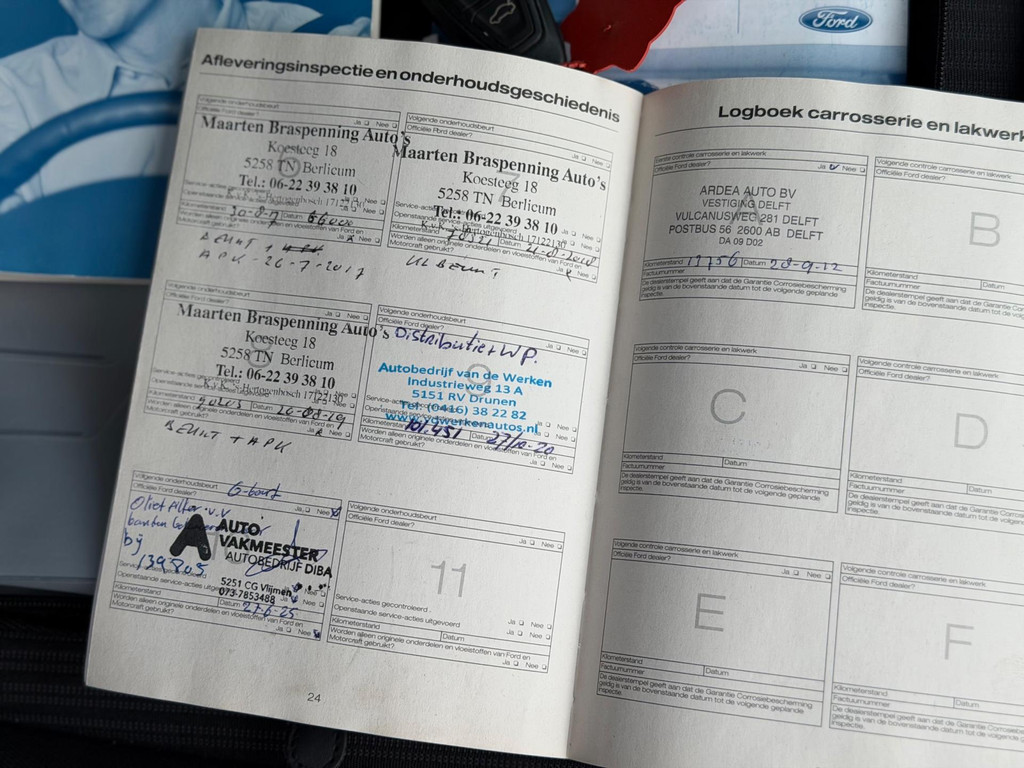 Ford
Afleveringsinspectie en onderhoudsgeschiedenis
Volgende onderhoudsbeurt
Officiële Ford dealer?
Ja Nee
Maarten Braspenning Auto's
Koesteeg 18
5258 TN Berlicum
Tel.: 06-22 39 38 10
Kilometerstand
30-8-17 Datum
Worden alleen originele onderdelen en vloeistoffen van Ford en
Motorcraft gebruikt?
Ja Nee
BEURT
APK-26-7-2017
Volgende onderhoudsbeurt
Officiële Ford dealer?
Ja Nee
7
Maarten Braspenning Auto's
Koesteeg 18
5258 TN Berlicum
Tel.: 06-22 39 38 10
K.v.K. 's-Hertogenbosch 17122130
Kilometerstand Datum
Worden alleen originele onderdelen en vloeistoffen van Ford en
Motorcraft gebruikt?
Ja Nee
BEURT
Volgende onderhoudsbeurt
Officiële Ford dealer?
Ja Nee
Maarten Braspenning Auto's
Koesteeg 18
5258 TN Berlicum
Tel.: 06-22 39 38 10
K.v.K. 's-Hertogenbosch 17122130
Kilometerstand Datum 20-08-19
Worden alleen originele onderdelen en vloeistoffen van Ford en
Motorcraft gebruikt?
Ja Nee
BEURT + APK
Volgende onderhoudsbeurt
Officiële Ford dealer?
Ja Nee
Distributie + WP.
9
Autobedrijf van de Werken
Industrieweg 13 A
5151 RV Drunen
Tel: (0416) 38 22 82
www.vdwerkenautos.nl
Kilometerstand 101.451 Datum 27/10-20
Worden alleen originele onderdelen en vloeistoffen van Ford en
Motorcraft gebruikt?
Ja Nee
Volgende onderhoudsbeurt
Officiële Ford dealer?
G-beurt
Ja Nee
bij
139805
AUTO
VAKMEESTER
AUTOBEDRIJF DIBA
5251 CG Vlijmen
073-7853488
Openstaande service-acties uitgevoerd
Kilometerstand Datum 27-6-25
Worden alleen originele onderdelen en vloeistoffen van Ford en
Motorcraft gebruikt?
Ja Nee
Volgende onderhoudsbeurt
Officiële Ford dealer?
Ja Nee
11
Service-acties gecontroleerd
Ja Nee
Openstaande service-acties uitgevoerd
Ja Nee
Kilometerstand Datum
Worden alleen originele onderdelen en vloeistoffen van Ford en
Motorcraft gebruikt?
Ja Nee
24
Logboek carrosserie en lakwerk
Eerste controle carrosserie en lakwerk
Officiële Ford dealer?
Ja Nee
A
ARDEA AUTO BV
VESTIGING DELFT
VULCANUSWEG 281 DELFT
POSTBUS 56 2600 AB DELFT
DA 09 D02
Kilometerstand 17756 Datum 28-9-12
Factuurnummer
De dealerstempel geeft aan dat de Garantie Corrosiebescherming
geldig is van de bovenstaande datum tot de volgende geplande
inspectie.
Volgende controle carrosserie en lakwerk
Officiële Ford dealer?
B
Kilometerstand
Factuurnummer
De dealerstempel geeft aan dat de Garantie
geldig is van de bovenstaande datum tot de
inspectie.
Volgende controle carrosserie en lakwerk
Officiële Ford dealer?
Ja Nee
C
Kilometerstand Datum
Factuurnummer
De dealerstempel geeft aan dat de Garantie Corrosiebescherming
geldig is van de bovenstaande datum tot de volgende geplande
inspectie.
Volgende controle carrosserie en lakwerk
Officiële Ford dealer?
D
Kilometerstand
Factuurnummer
De dealerstempel geeft aan dat de Garantie
geldig is van de bovenstaande datum tot de
inspectie.
Volgende controle carrosserie en lakwerk
Officiële Ford dealer?
Ja Nee
E
Kilometerstand Datum
Factuurnummer
De dealerstempel geeft aan dat de Garantie Corrosiebescherming
geldig is van de bovenstaande datum tot de volgende geplande
inspectie.
Volgende controle carrosserie en lakwerk
Officiële Ford dealer?
F
Kilometerstand
Factuurnummer
De dealerstempel geeft aan dat de Garantie
geldig is van de bovenstaande datum tot de
inspectie.